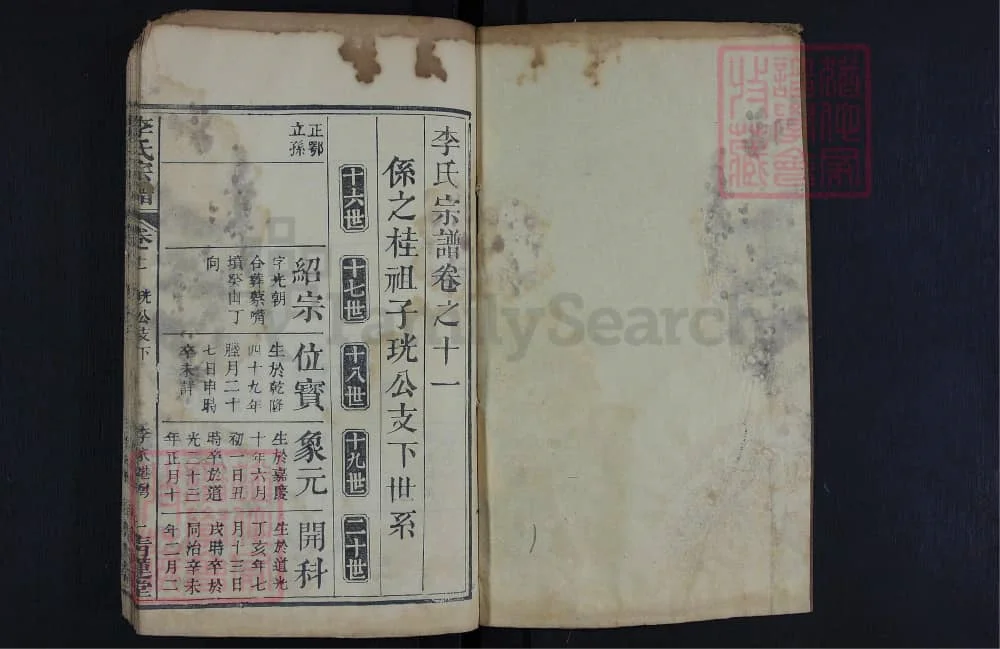 李氏宗譜卷之十一
係之桂祖子珖公支下世系
十六世
十七世
十八世
十九世
二十世
正鄂
立孫
紹宗
字光朝
合葬蔡嘴
墳癸山丁
向
位寶
生於乾隆
四十九年
臘月二十
七日申時
卒未詳
象元
生於嘉慶
十年六月
初一日丑
時卒於道
光二十三
年正月十
開科
生於道光
丁亥年七
月十三日
戌時卒於
同治辛未
年二月二
李氏宗譜
珖公支下
青蓮堂
FamilySearch